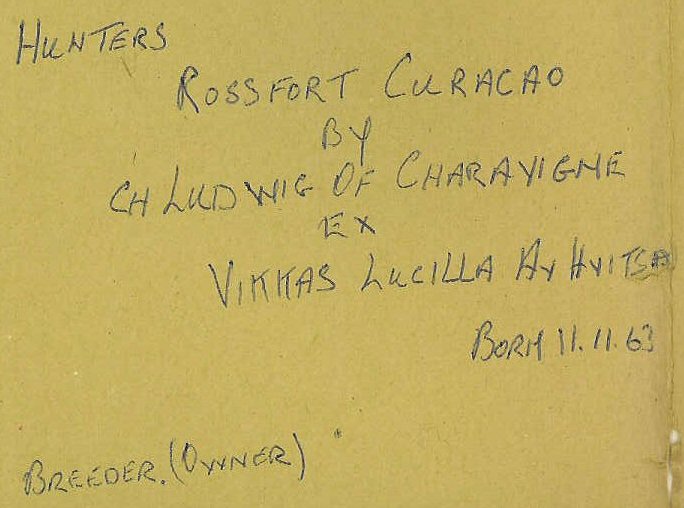 HUNTERS
ROSSFORT CURACAO
BY
CH LUDWIG OF CHARAVIGNE
EX
VIKKAS LUCILLA AV HVITSA
BORN 11.11.63
BREEDER. (OWNER)